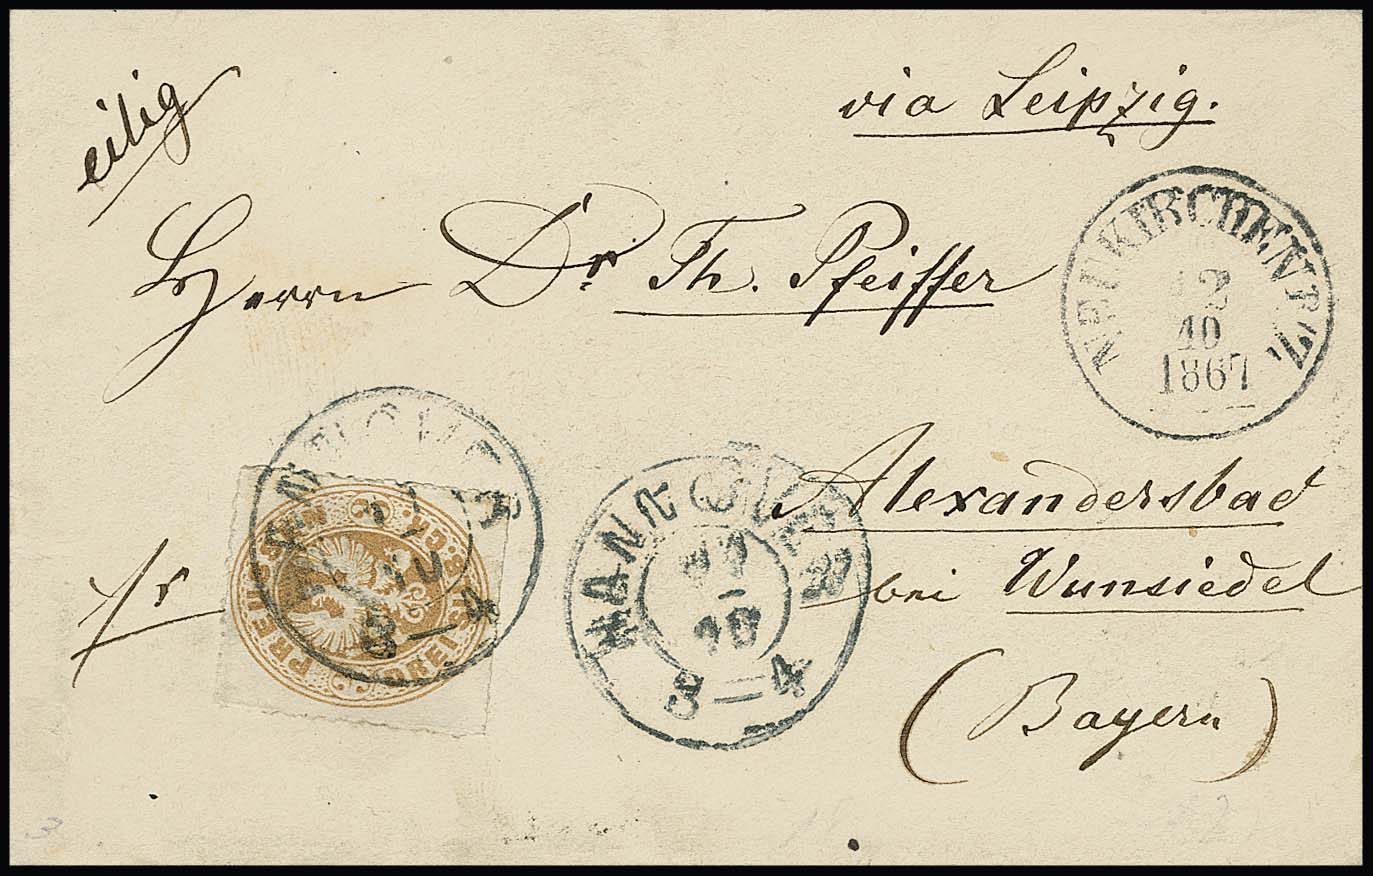 eilig
via Leipzig.
Herrn Dr. Th. Pfeiffer
NEUKIRCHEN
12
10
1867
Alexandersbad
bei Wunsiedel
(Bayern)
fr
HANNOVER
11
10
3–4
HANNOVER
11
10
3–4
PREUSSEN
DREI SILB. GR.